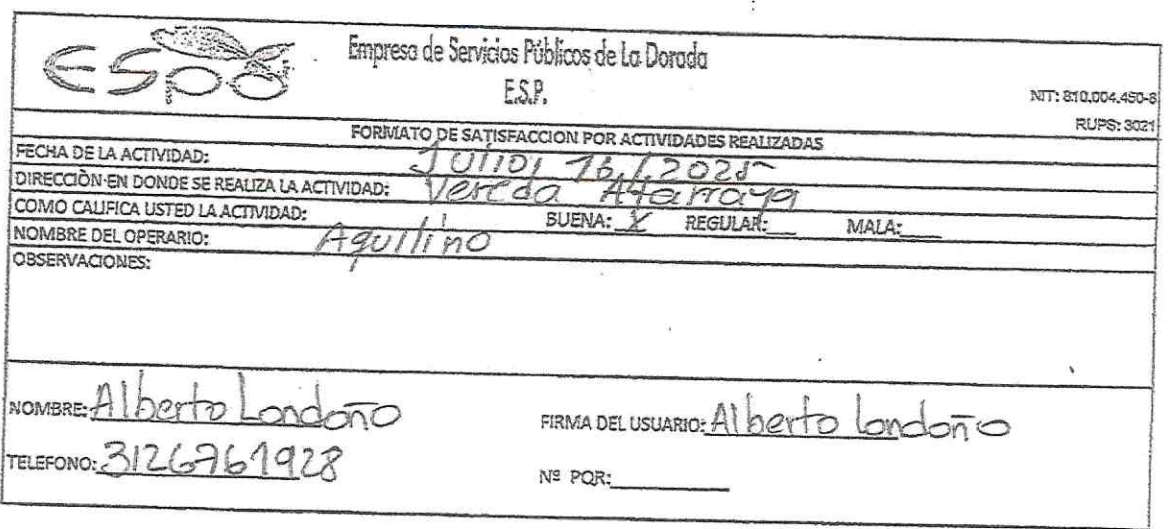 ESPD
Empresa de Servicios Públicos de La Dorada
E.S.P.
NIT: 810.004.450-8
RUPS: 3021
FORMATO DE SATISFACCION POR ACTIVIDADES REALIZADAS
FECHA DE LA ACTIVIDAD: Julio, 16 / 2025
DIRECCIÒN EN DONDE SE REALIZA LA ACTIVIDAD: Vereda Atarraya
COMO CALIFICA USTED LA ACTIVIDAD: BUENA: X REGULAR:___ MALA:____
NOMBRE DEL OPERARIO: Aquilino
OBSERVACIONES:
NOMBRE: Alberto Londoño FIRMA DEL USUARIO: Alberto londoño
TELEFONO: 3126761928 Nº PQR:_________